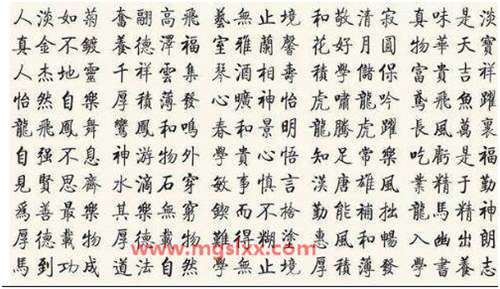 人淡如菊 奮翮高飛 藝無止境 和敬清寂 真味是淡
真金不鍍 養德澤福 室雅蘭馨 花好月圓 物華天寶
人杰地靈 千祥雲集 琴酒相壽 積學儲 富貴吉祥
怡然自樂 厚積薄發 心曠神怡 虎嘯龍吟 鳶飛魚躍
龍飛鳳舞 鸞鳳和鳴 春和景明 龍騰虎躍 長風萬裏
自强不息 神游物外 學貴心悟 知足常樂 吃虧是福
見賢思齊 水滴石穿 敏事慎言 漢唐雄風 業精于勤
爲善最樂 其樂無窮 鍥而不捨 勤能補拙 龍馬精神
厚德載物 厚德載物 難得糊塗 惠風和暢 入幽出朗
www.mgslxx.com
馬到功成 道法自然 學無止境 厚積薄發 學書養志